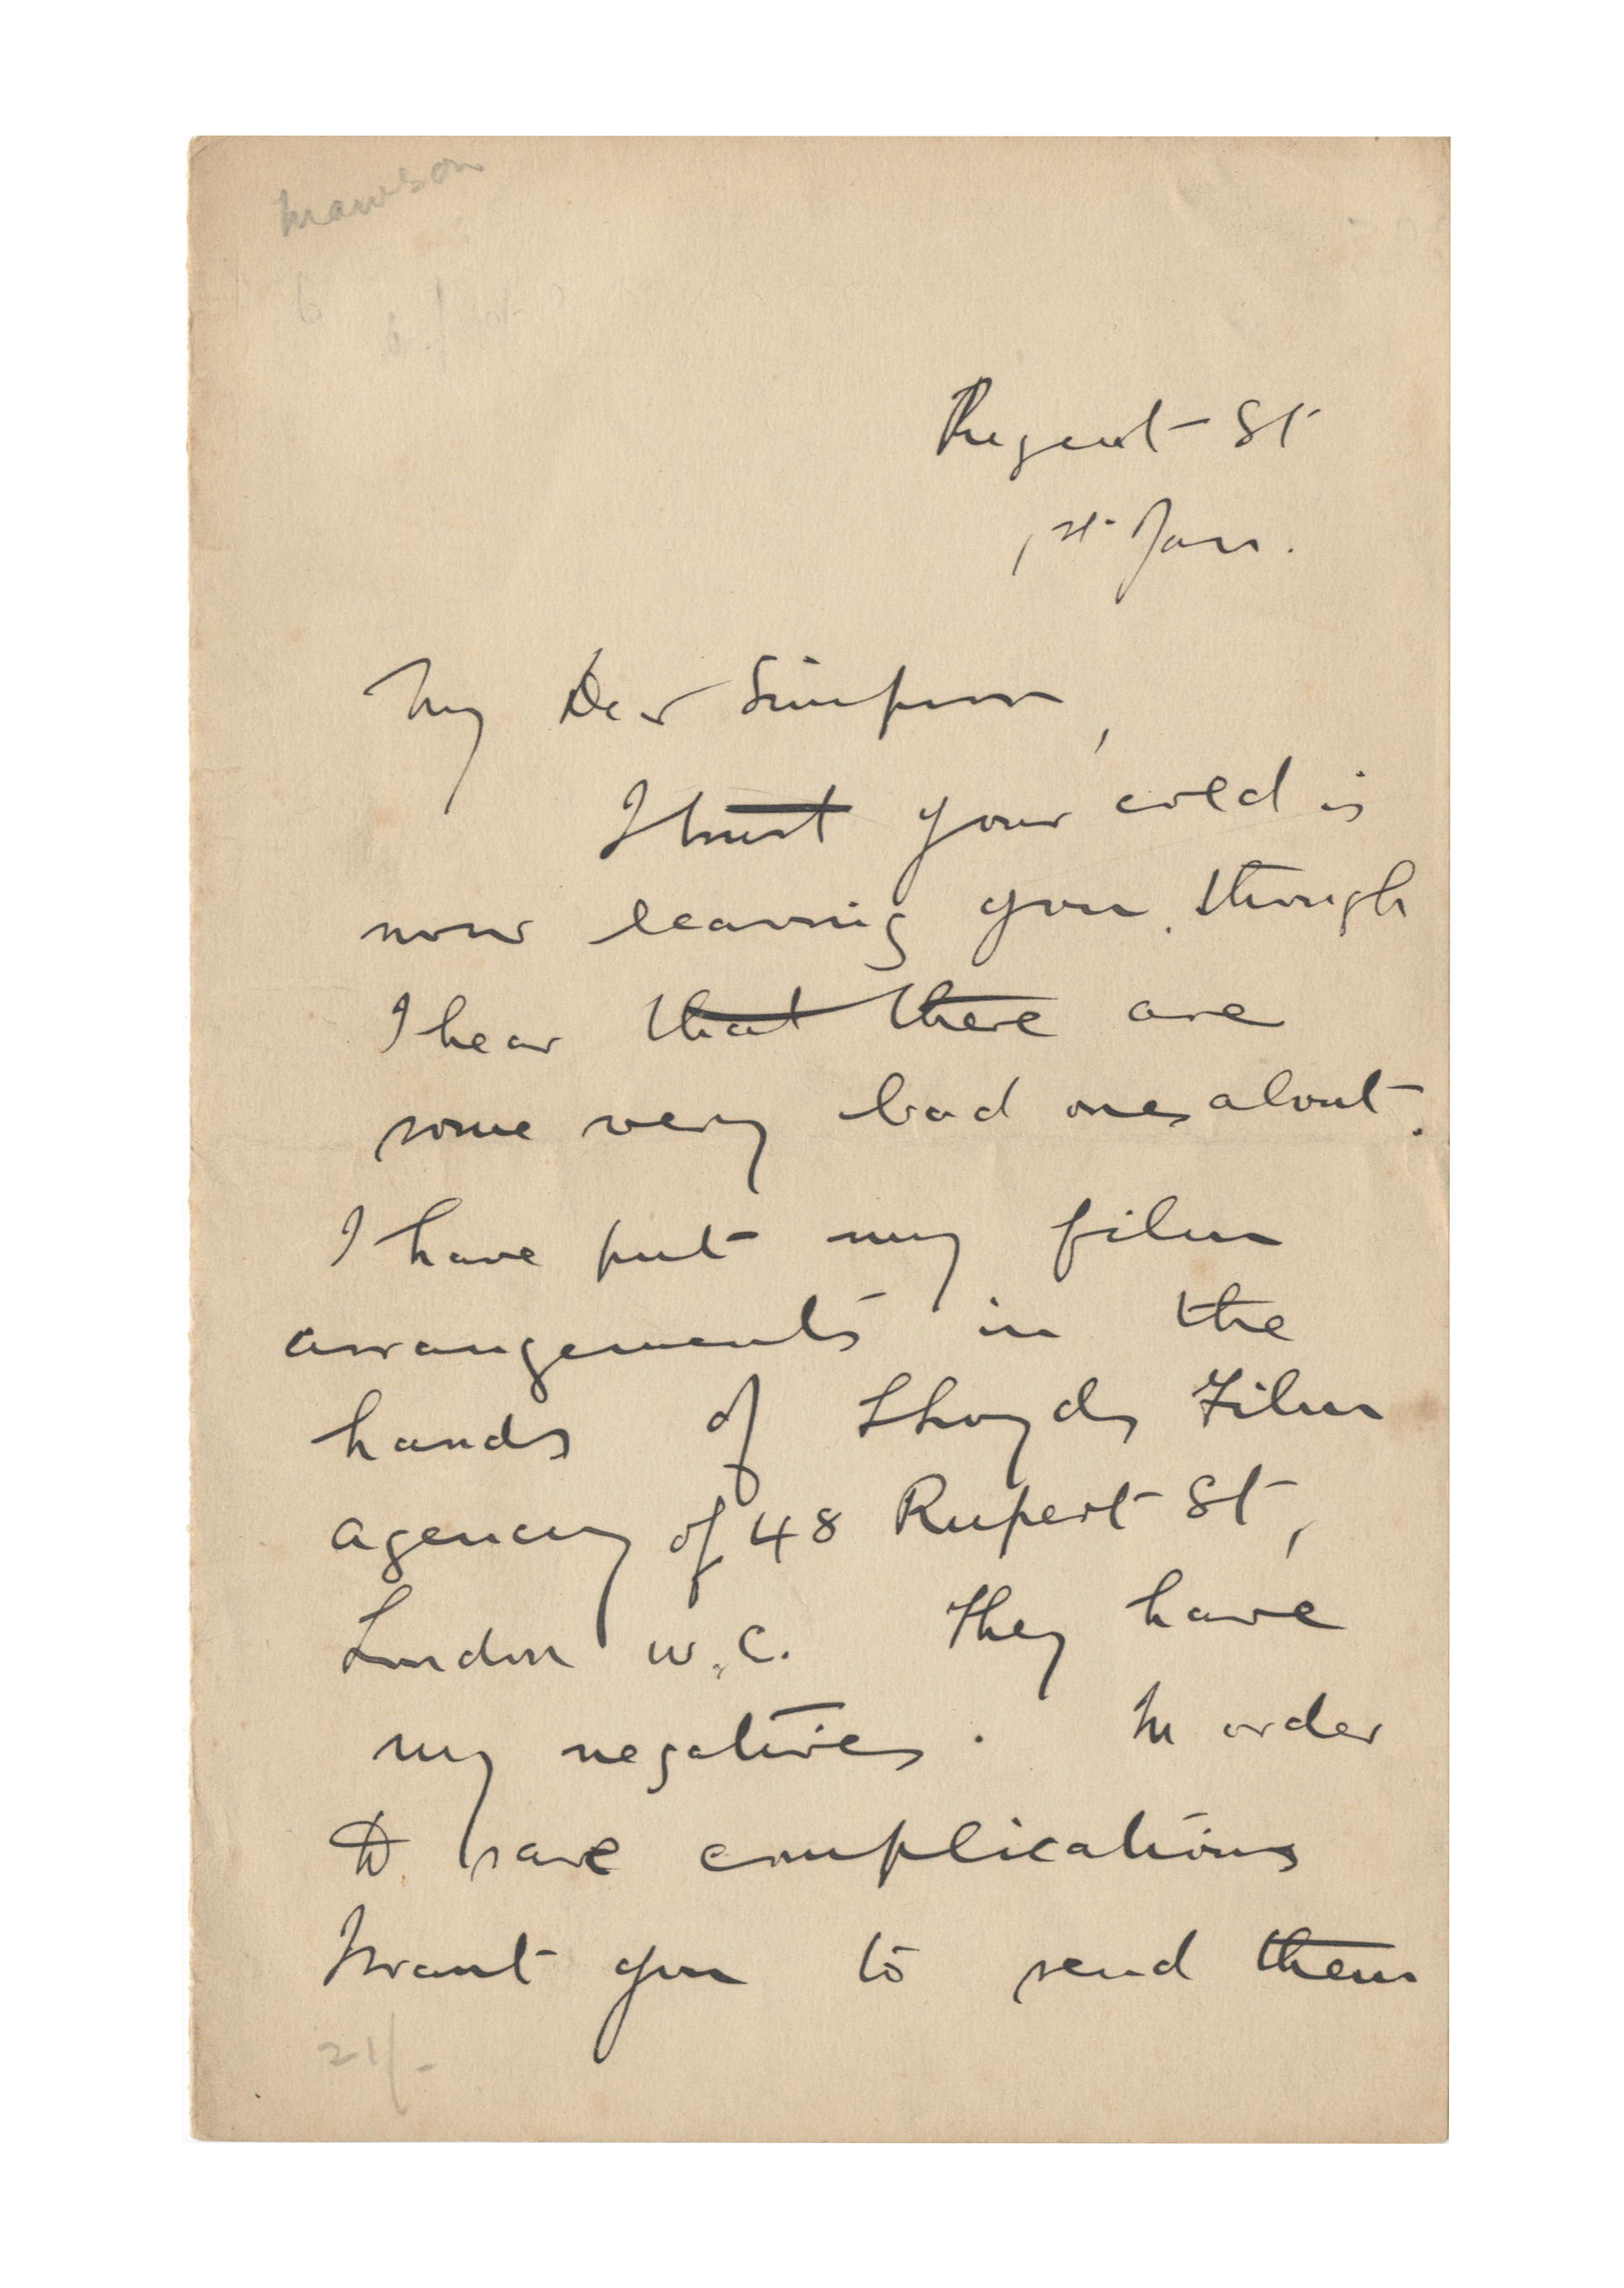 Mawson
6
Regent St
1st Jan.
My Dear Simpson,
I trust your cold is
now leaving you, though
I hear that there are
some very bad ones about.
I have put my film
arrangements in the
hands of Lloyds Film
agency of 48 Rupert St,
London W.C. They have
my negatives. In order
to save complications
I want you to send them
21/-